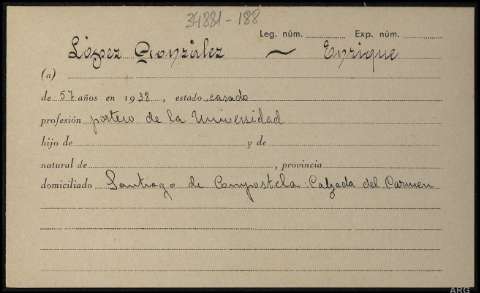 34881-188
Leg. núm. Exp. núm.
López González ~ Enrique
(a)
de 57 años en 1938, estado casado
profesión portero de la Universidad
hijo de y de
natural de , provincia
domiciliado Santiago de Compostela. Calzada del Carmen
ARG